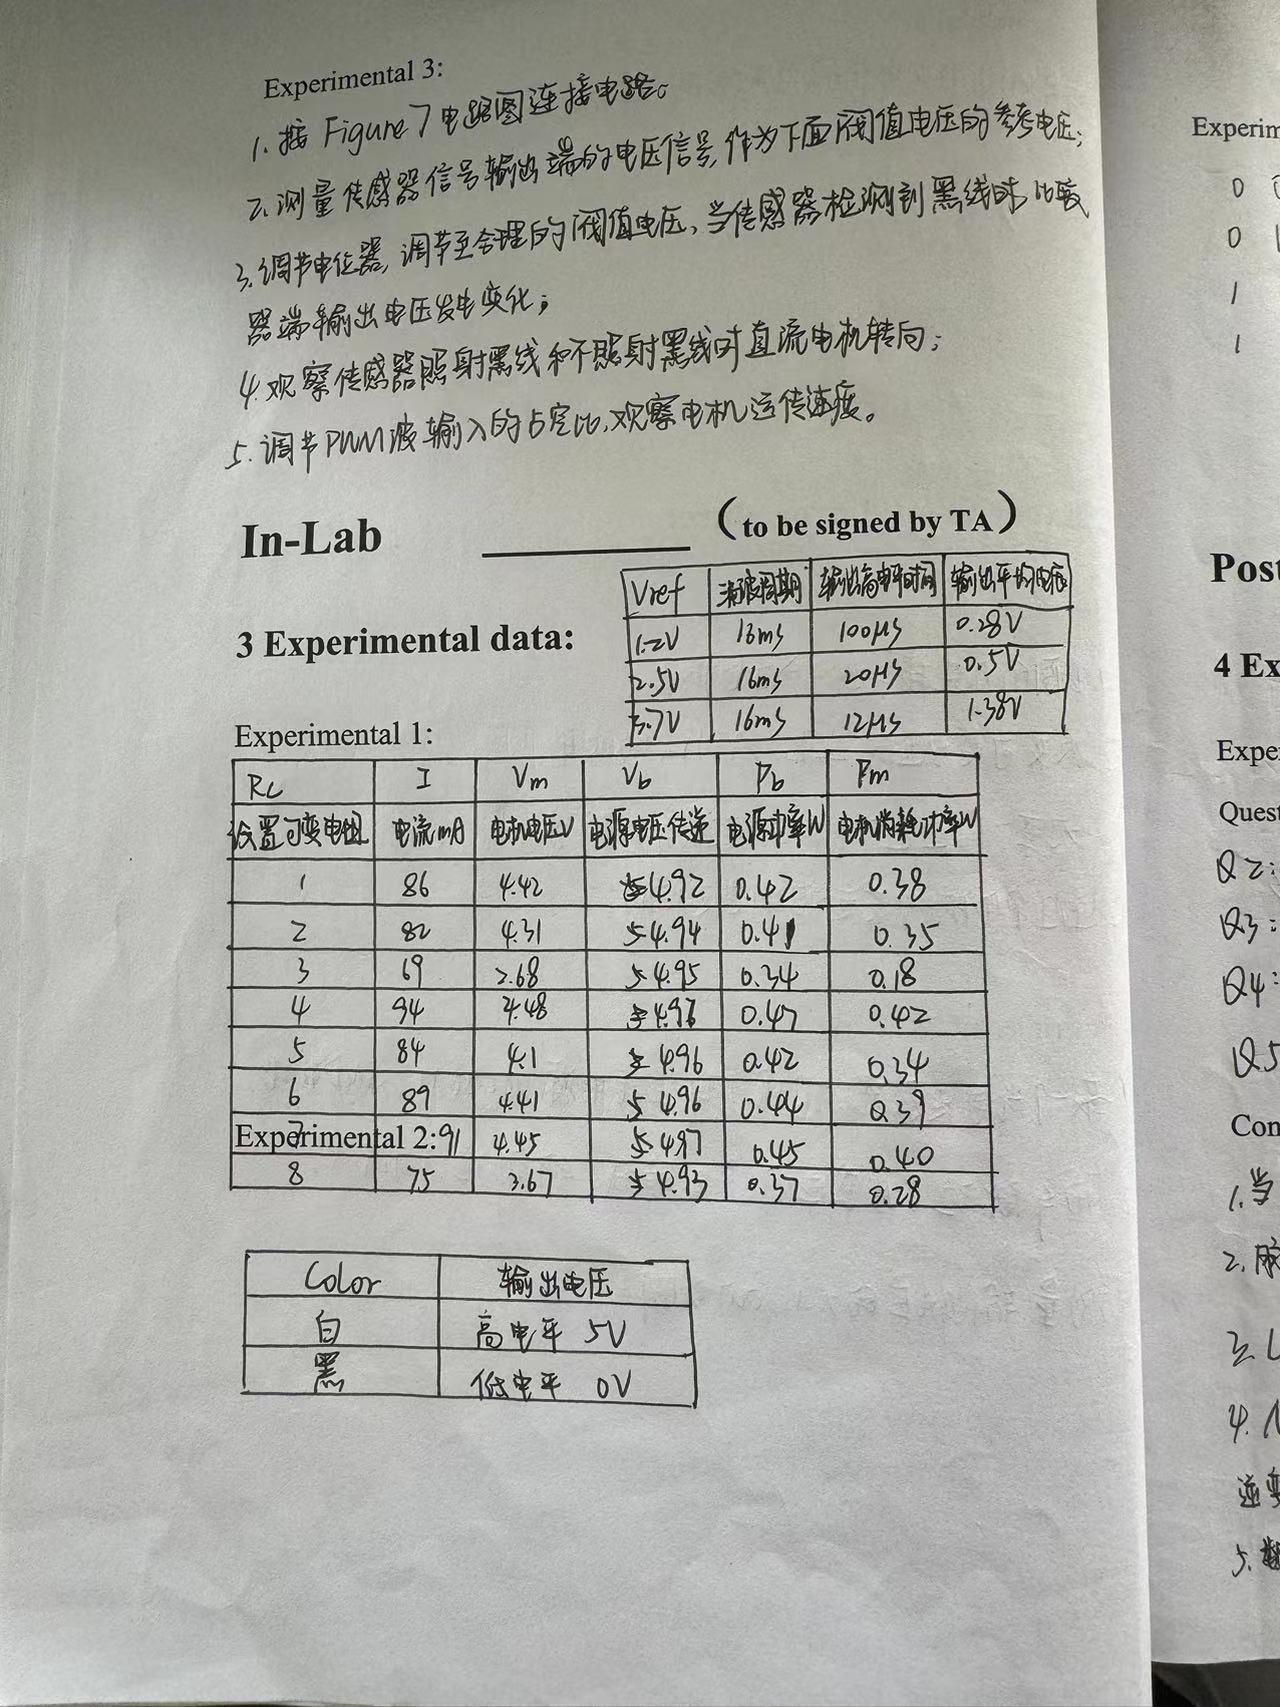 Experimental 3:
1. 按 Figure 7 电路图连接电路。
2. 测量传感器信号输出端的电压信号,作为下面阀值电压的参考电压;
3. 调节电位器,调节至合理的阀值电压,当传感器检测到黑线时比较
器端输出电压发生变化;
4. 观察传感器照射黑线和不照射黑线时直流电机转向;
5. 调节PWM波输入的占空比,观察电机运传速度。
In-Lab (to be signed by TA)
Vref 输出高电平时间 输出平均电压
1.2V 16ms 100μs 0.28V
2.5V 16ms 20μs 0.5V
3.7V 16ms 12μs 1.38V
3 Experimental data:
Experimental 1:
RL I Vm Vb Pb Pm
设置可变电阻 电流mA 电机电压V 电源电压传递 电源功率W 电机消耗功率W
1 86 4.42 4.92 0.42 0.38
2 82 4.31 5 4.94 0.41 0.35
3 69 2.68 5 4.95 0.34 0.18
4 94 4.48 4.96 0.47 0.42
5 84 4.1 4.96 0.42 0.34
6 89 4.41 5 4.96 0.44 0.39
Experimental 2:
7 91 4.45 5 4.97 0.45 0.40
8 75 3.67 5 4.93 0.37 0.28
Color 输出电压
白 高电平 5V
黑 低电平 0V
Experim
0
0
1
1
Post
4 Ex
Expe
Quest
Q2:
Q3:
Q4:
Q5
Con
1. 当
2.
3. L
4.
5.